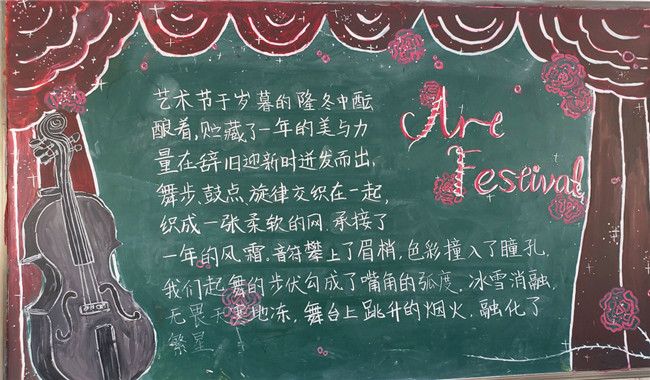 艺术节于岁暮的隆冬中酝
酿着,贮藏了一年的美与力
量在辞旧迎新时迸发而出,
舞步、鼓点、旋律交织在一起,
织成一张柔软的网,承接了
一年的风霜,音符攀上了眉梢,色彩撞入了瞳孔,
我们起舞的步伏勾成了嘴角的弧度,冰雪消融,
无畏天寒地冻,舞台上跳升的烟火,融化了
繁星
Are
Festival